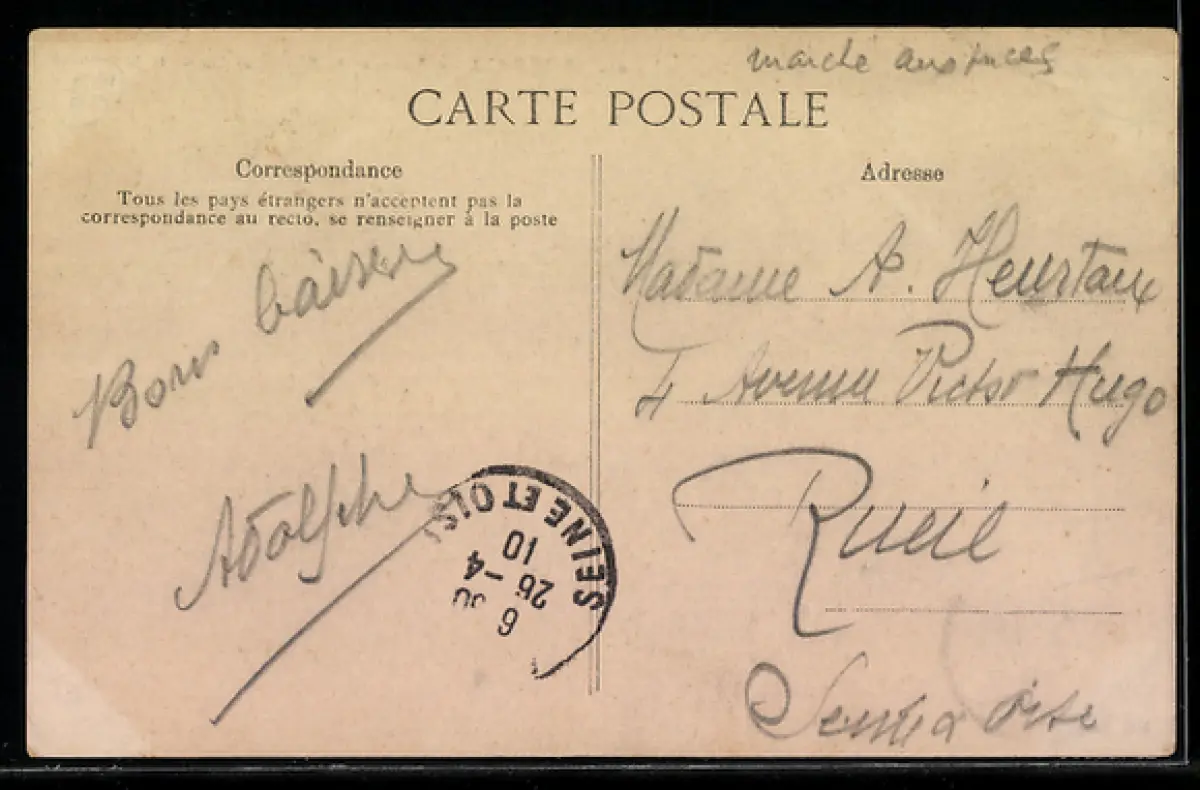 marché aux puces
CARTE POSTALE
Correspondance
Tous les pays étrangers n'acceptent pas la
correspondance au recto, se renseigner à la poste
Bons baisers
Adolphe
SEINE ET OIS
10
26-4
Adresse
Madame A. Heurtaux
4 Avenue Victor Hugo
Rueil
Seine & Oise